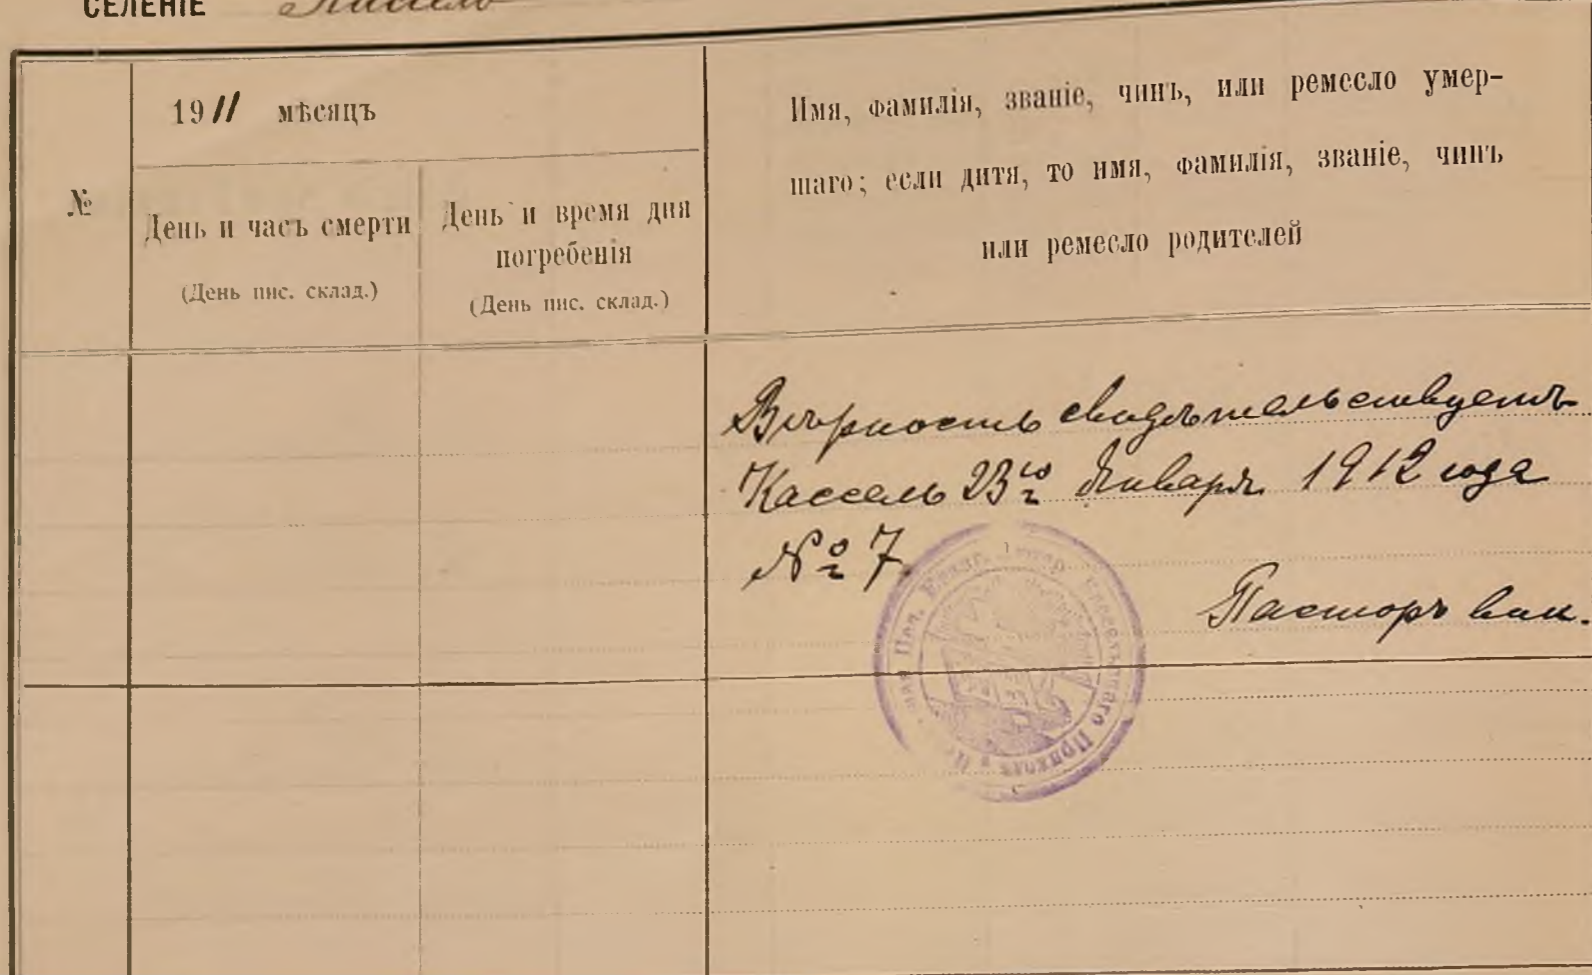 СЕЛЕНІЕ Кассель
1911 мѣсяцъ
№
День и часъ смерти
(День пис. склад.)
День и время дня
погребенія
(День пис. склад.)
Имя, фамилія, званіе, чинъ, или ремесло умер-
шаго; если дитя, то имя, фамилія, званіе, чинъ
или ремесло родителей
Вѣрность свидѣтельствуетъ
Кассель 23го Января 1912 года
№ 7
Пасторъ вик.